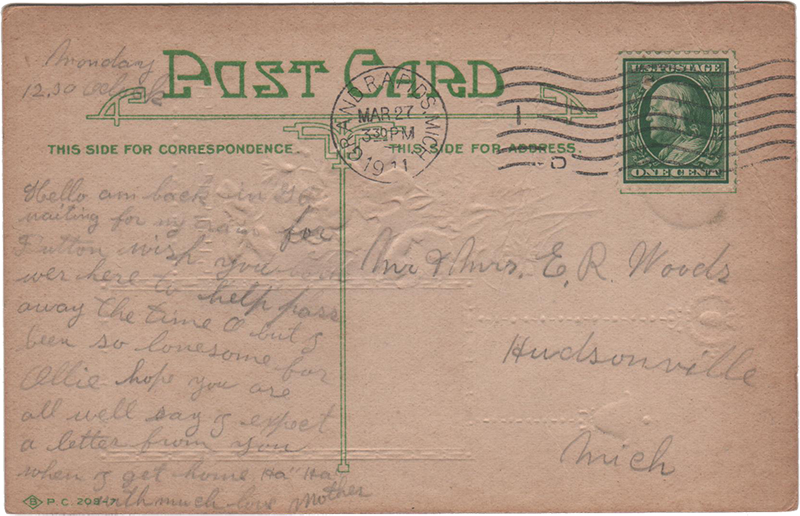 Monday
12.30 Oclock
POST CARD
GRAND RAPIDS, MICH
MAR 27
3 30 PM
1911
U.S. POSTAGE
ONE CENT
THIS SIDE FOR CORRESPONDENCE.
THIS SIDE FOR ADDRESS.
Hello am back in G R
waiting for my train for
Fulton wish you
wer here to help pass
away the time O but I
been so lonesome for
Ollie hope you are
all well say I expect
a letter from you
when I get home Ha" Ha"
with much love Mother
Mr & Mrs. E. R. Woods
Hudsonville
Mich
B P.C. 208-7